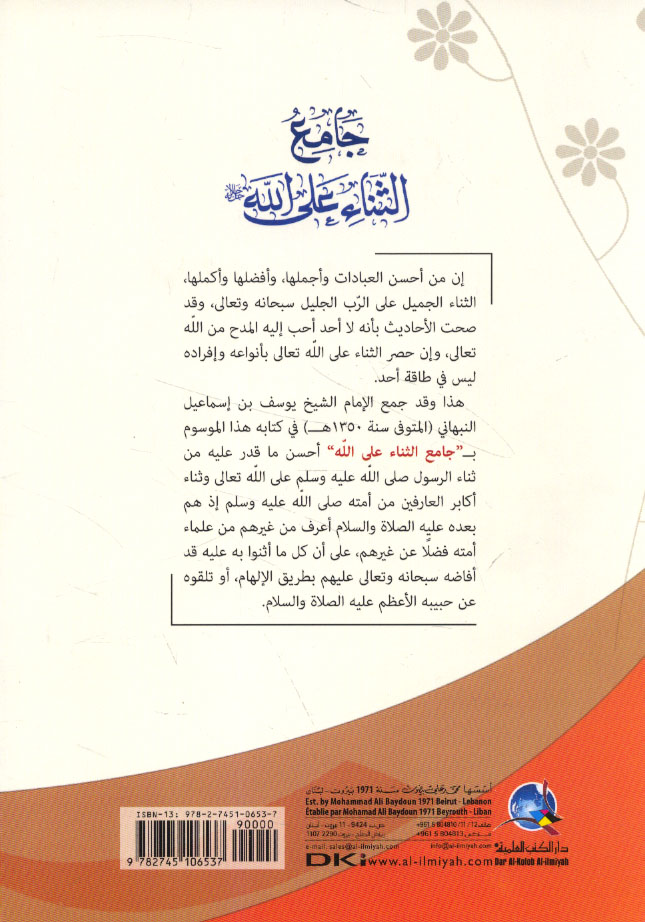 جَامِعُ
الثَّنَاءِ عَلَى اللَّه
إن من أحسن العبادات وأجملها، وأفضلها وأكملها،
الثناء الجميل على الرّب الجليل سبحانه وتعالى، وقد
صحت الأحاديث بأنه لا أحد أحب إليه المدح من اللّه
تعالى، وإن حصر الثناء على اللّه تعالى بأنواعه وإفراده
ليس في طاقة أحد.
هذا وقد جمع الإمام الشيخ يوسف بن إسماعيل
النبهاني (المتوفى سنة ١٣٥٠هـ) في كتابه هذا الموسوم
بـ"جامع الثناء على اللّه" أحسن ما قدر عليه من
ثناء الرسول صلى اللّه عليه وسلم على اللّه تعالى وثناء
أكابر العارفين من أمته صلى اللّه عليه وسلم إذ هم
بعده عليه الصلاة والسلام أعرف من غيرهم من علماء
أمته فضلًا عن غيرهم، على أن كل ما أثنوا به عليه قد
أفاضه سبحانه وتعالى عليهم بطريق الإلهام، أو تلقوه
عن حبيبه الأعظم عليه الصلاة والسلام.
أسسها محمد علي بيضون سنة 1971 بيروت - لبنان
Est. by Mohammad Ali Baydoun 1971 Beirut - Lebanon
Établie par Mohamad Ali Baydoun 1971 Beyrouth - Liban
+961 5 804810/11/12
11 - 9424
+961 5 804813
1107 2290
e-mail: sales@al-ilmiyah.com info@al-ilmiyah.com
دار الكتب العلمية
DKi www.al-ilmiyah.com Dar Al-Kotob Al-ilmiyah
ISBN-13: 978-2-7451-0653-7
90000
9 782745 106537